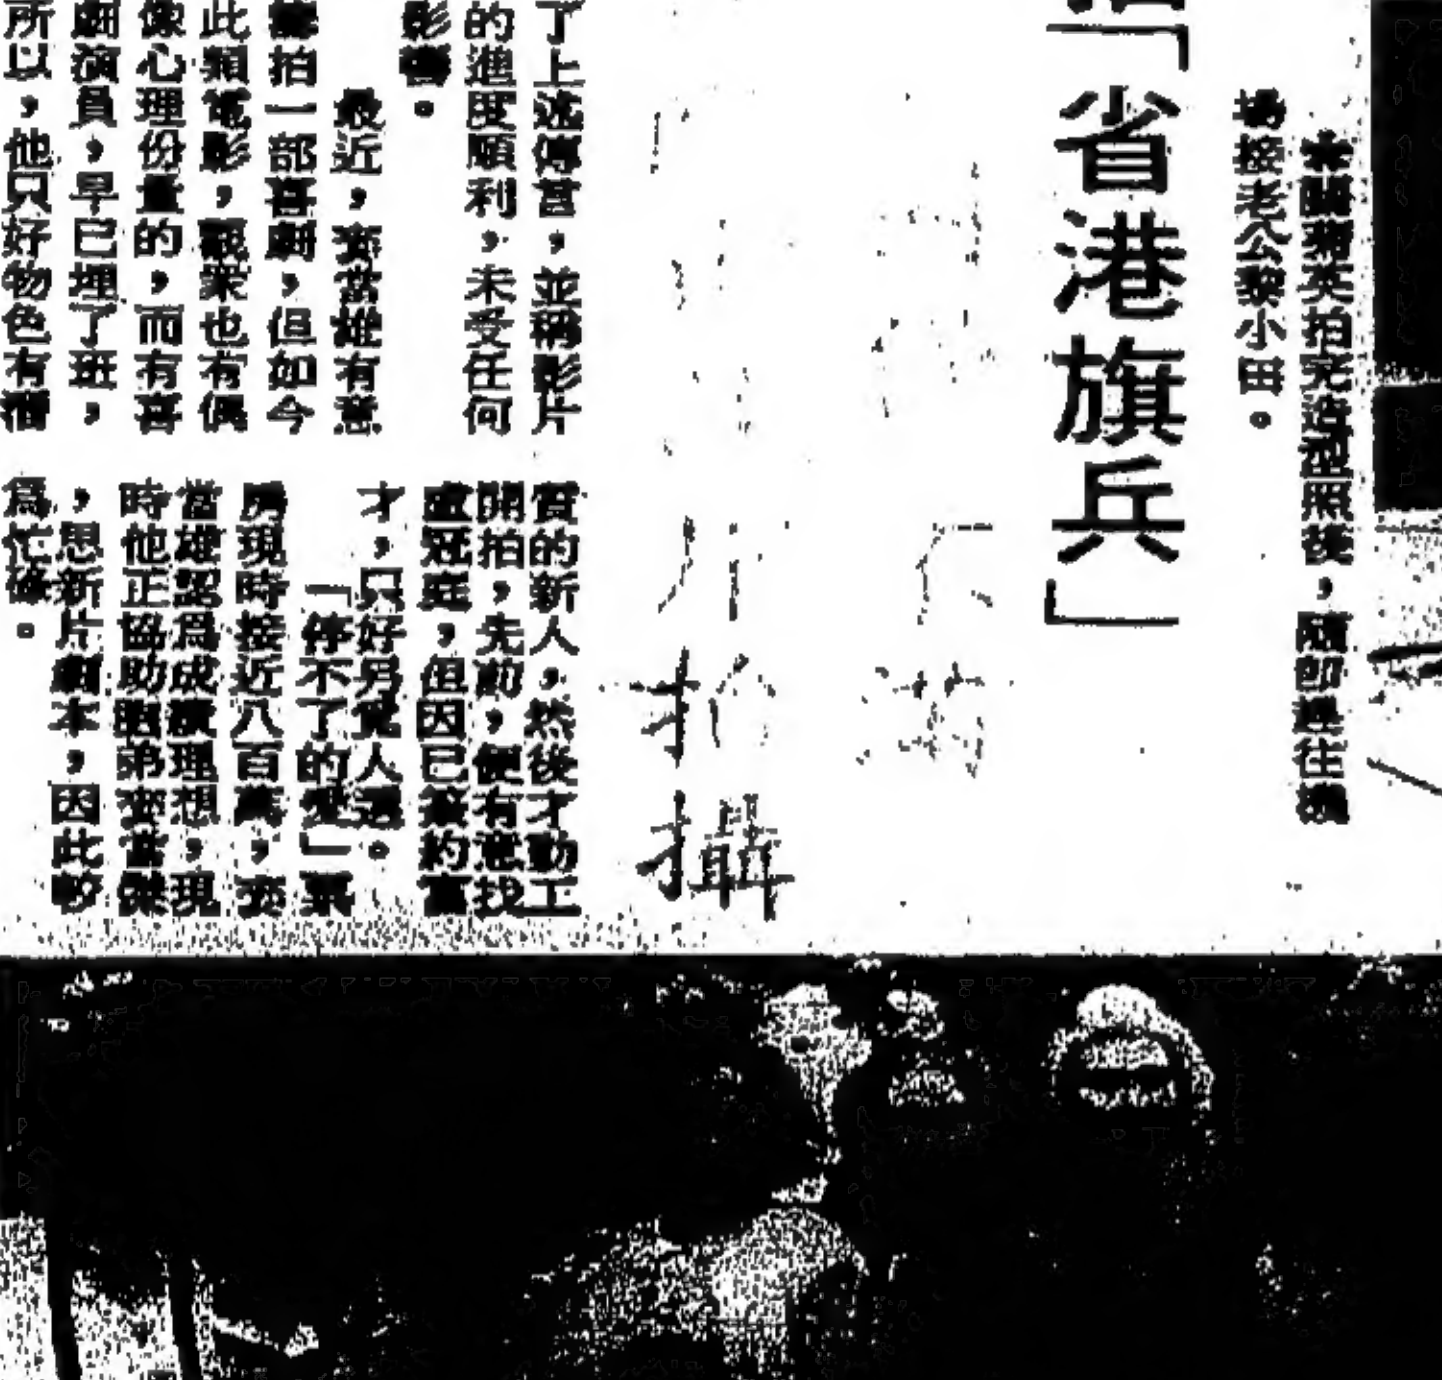 關菊英拍完造型照後，隨即趕往機
場接老公黎小田。
「省港旗兵」
拍攝
了上述傳言，並稱影片
的進度順利，未受任何
影響。
最近，麥當雄有意
籌拍一部喜劇，但如今
此類電影，觀眾也有偶
像心理份量的，而有喜
劇演員，早已埋了班，
所以，他只好物色有潛
質的新人，然後才動工
開拍，先前，便有意找
盧冠廷，但因已簽約
才，只好另覓人選。
「停不了的愛」票
房現時接近八百萬，麥
當雄認爲成績理想，現
時他正協助胞弟麥當傑
，思新片劇本，因此較
爲忙碌。